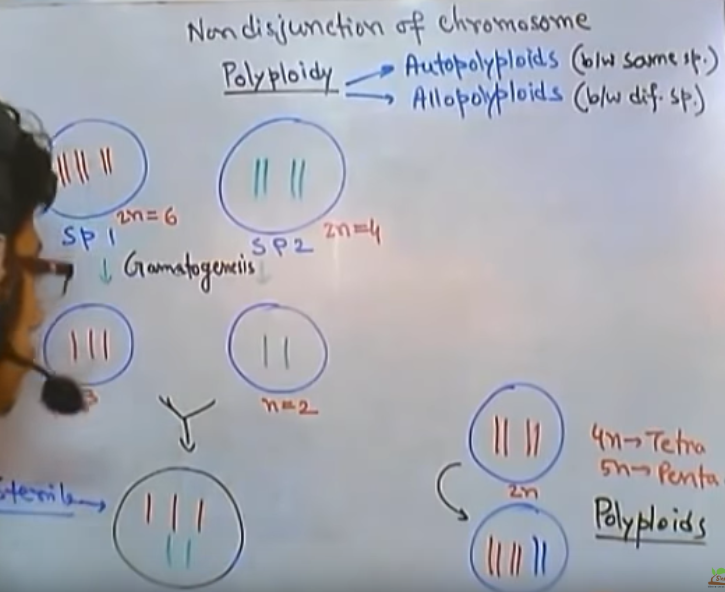 Nondisjunction of chromosome
Polyploidy
Autopolyploids (b/w same sp.)
Allopolyploids (b/w dif. sp.)
2n=6
SP1
2n=4
SP2
Gamatogeneiis
3
n=2
4n→Tetra
5n→Penta
2n
Polyploids